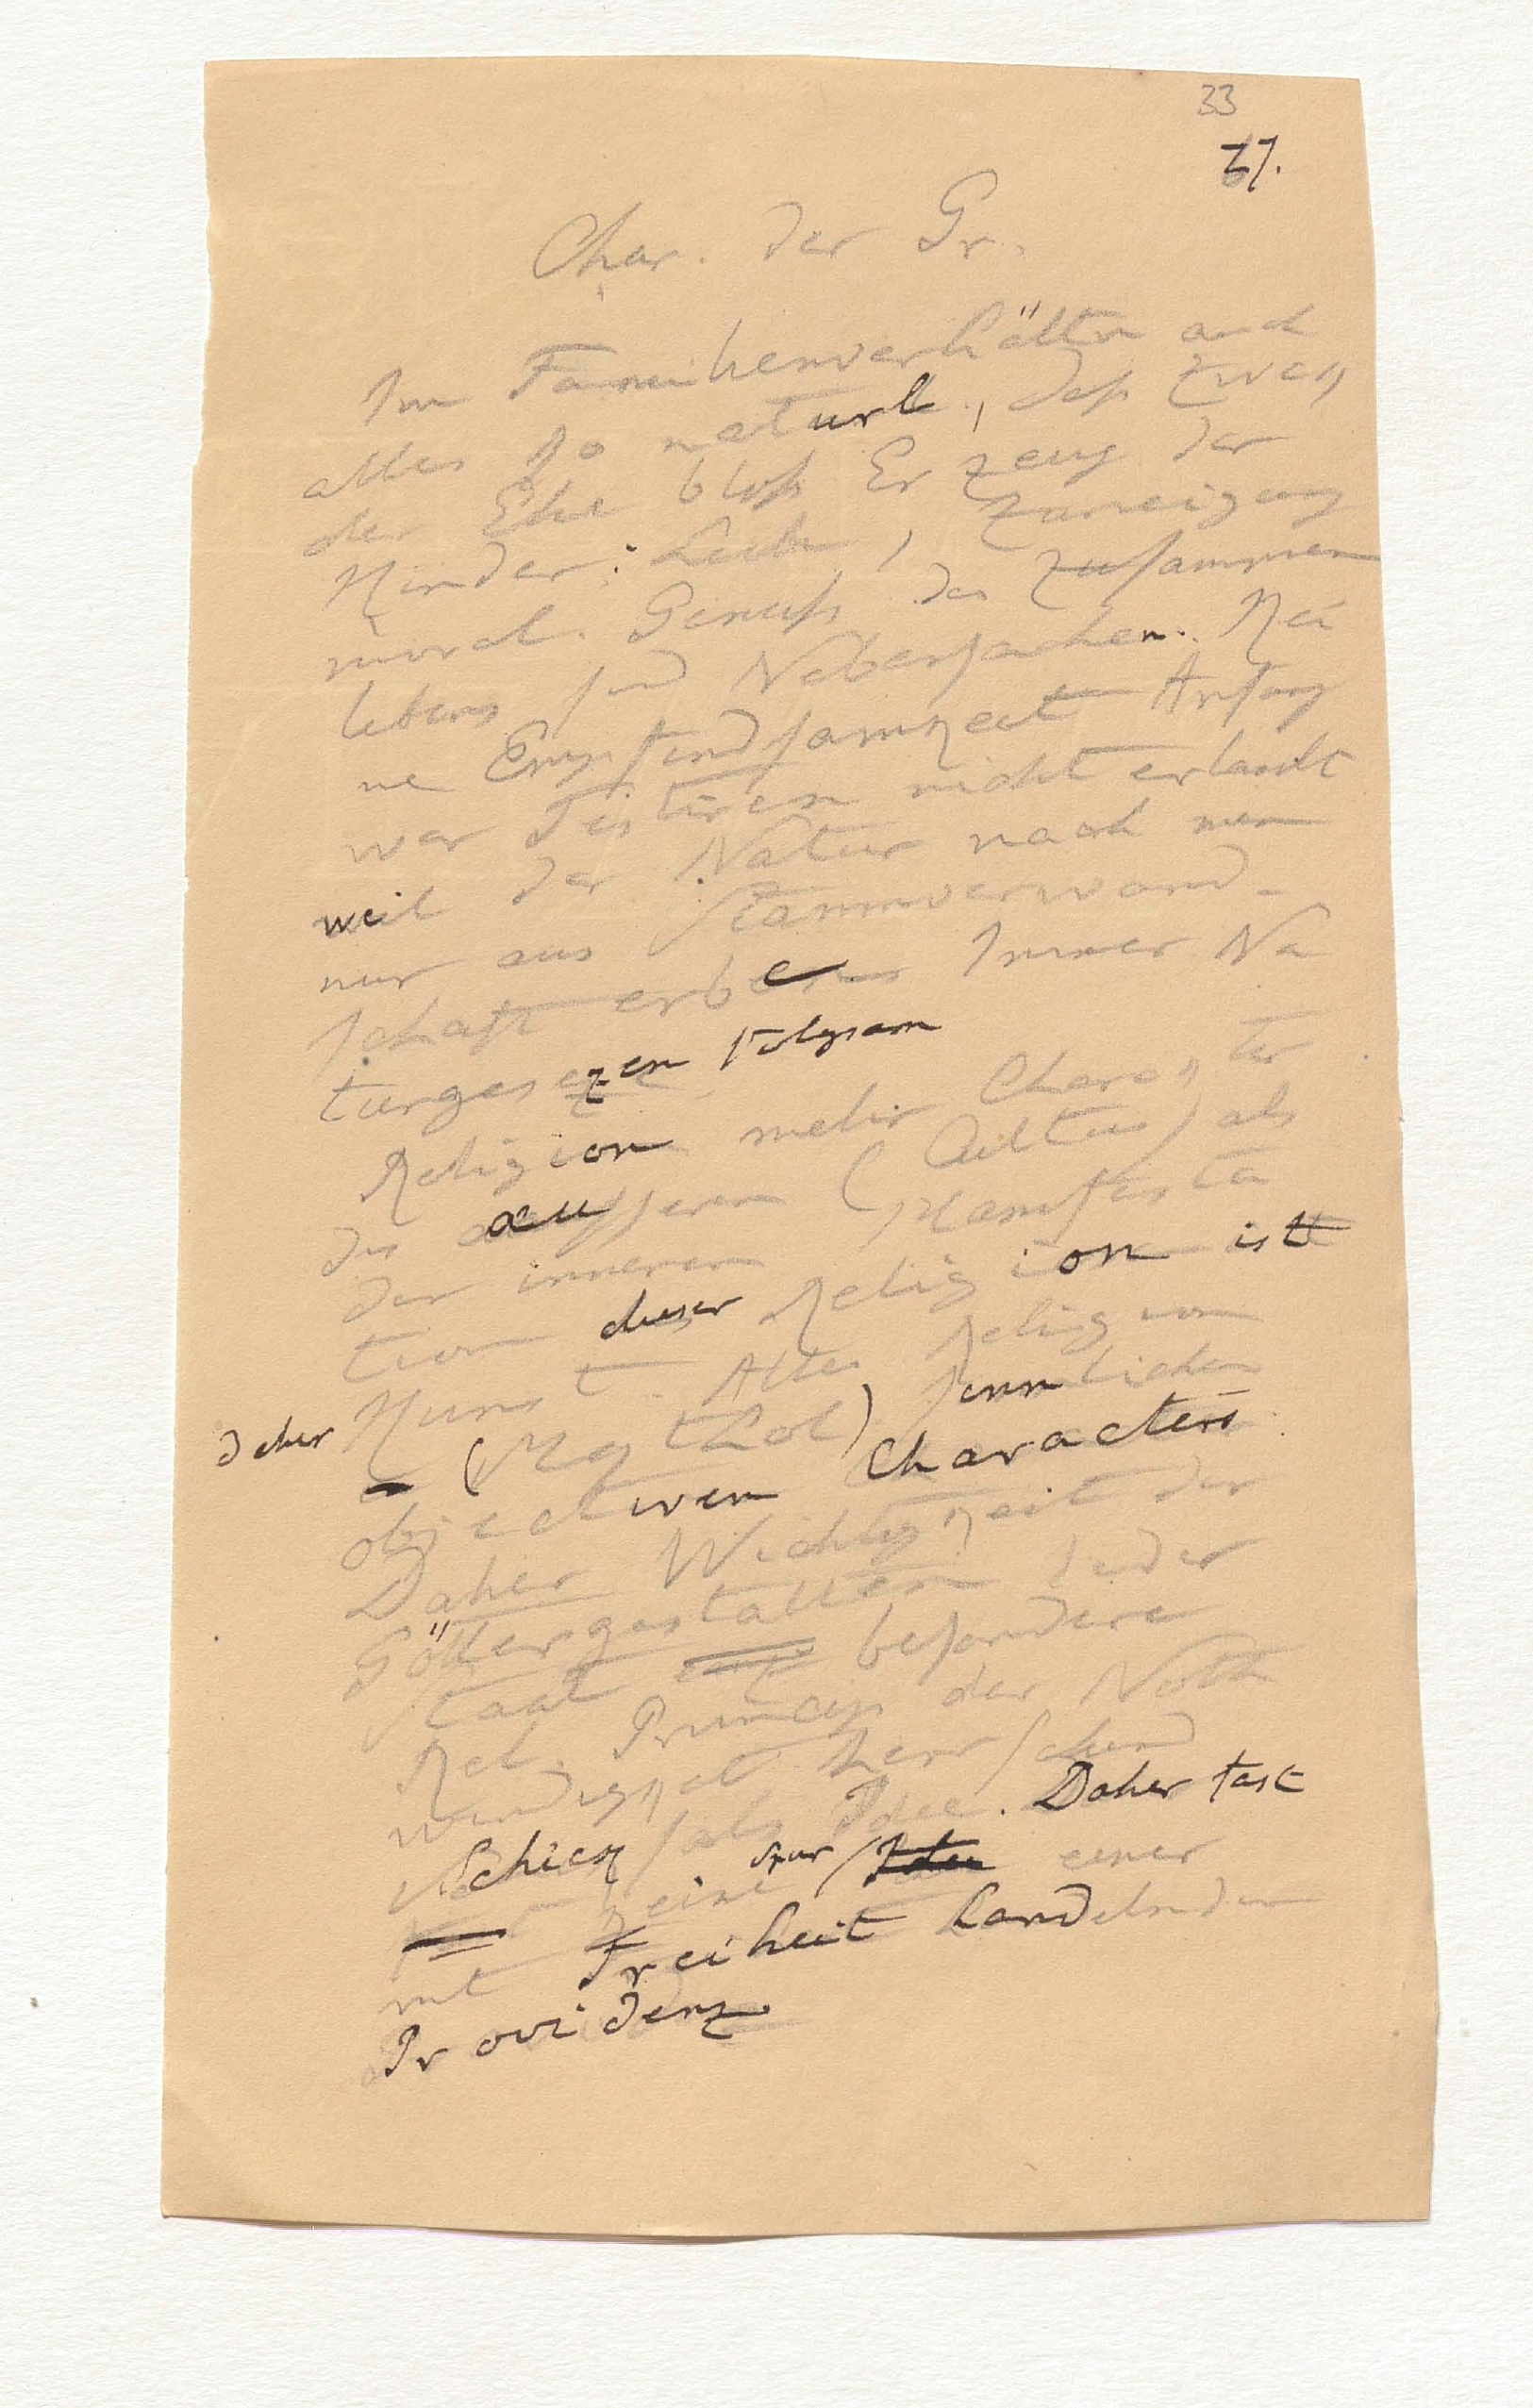 33
37.
Char. der Gr.
Im Familienverhältn auch
alles so naturl., daß Zweck
der Ehe bloß Erzeug. der
Kinder: Liebe, Zuneigung
moral. Genuß des Zusammen
lebens sind Nebensachen. Kei
ne Empfindsamkeit Anfang
war Testiren nicht erlaubt
weil der Natur nach man
nur aus Stammverwand-
schaft erbe Immer Na
turgesezen folgsam
Religion mehr Charakter
des äusseren (Cultus) als
der inneren Manifesta
tion dieser Religion ist
Kunst. Alter Religion
daher (Mythol) sinnlichen
objectiven Characters
Daher Wichtigkeit der
Göttergestalten Jeder
Staat besondere
Rel. Princip der Noth
wendigkeit herrschend
Schicksals Idee. Daher fast
keine Spur einer
mit Freiheit handelnden
Providenz.